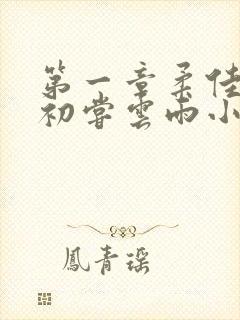 第一章柔佳
初尝雲雨小
鳳青瑶